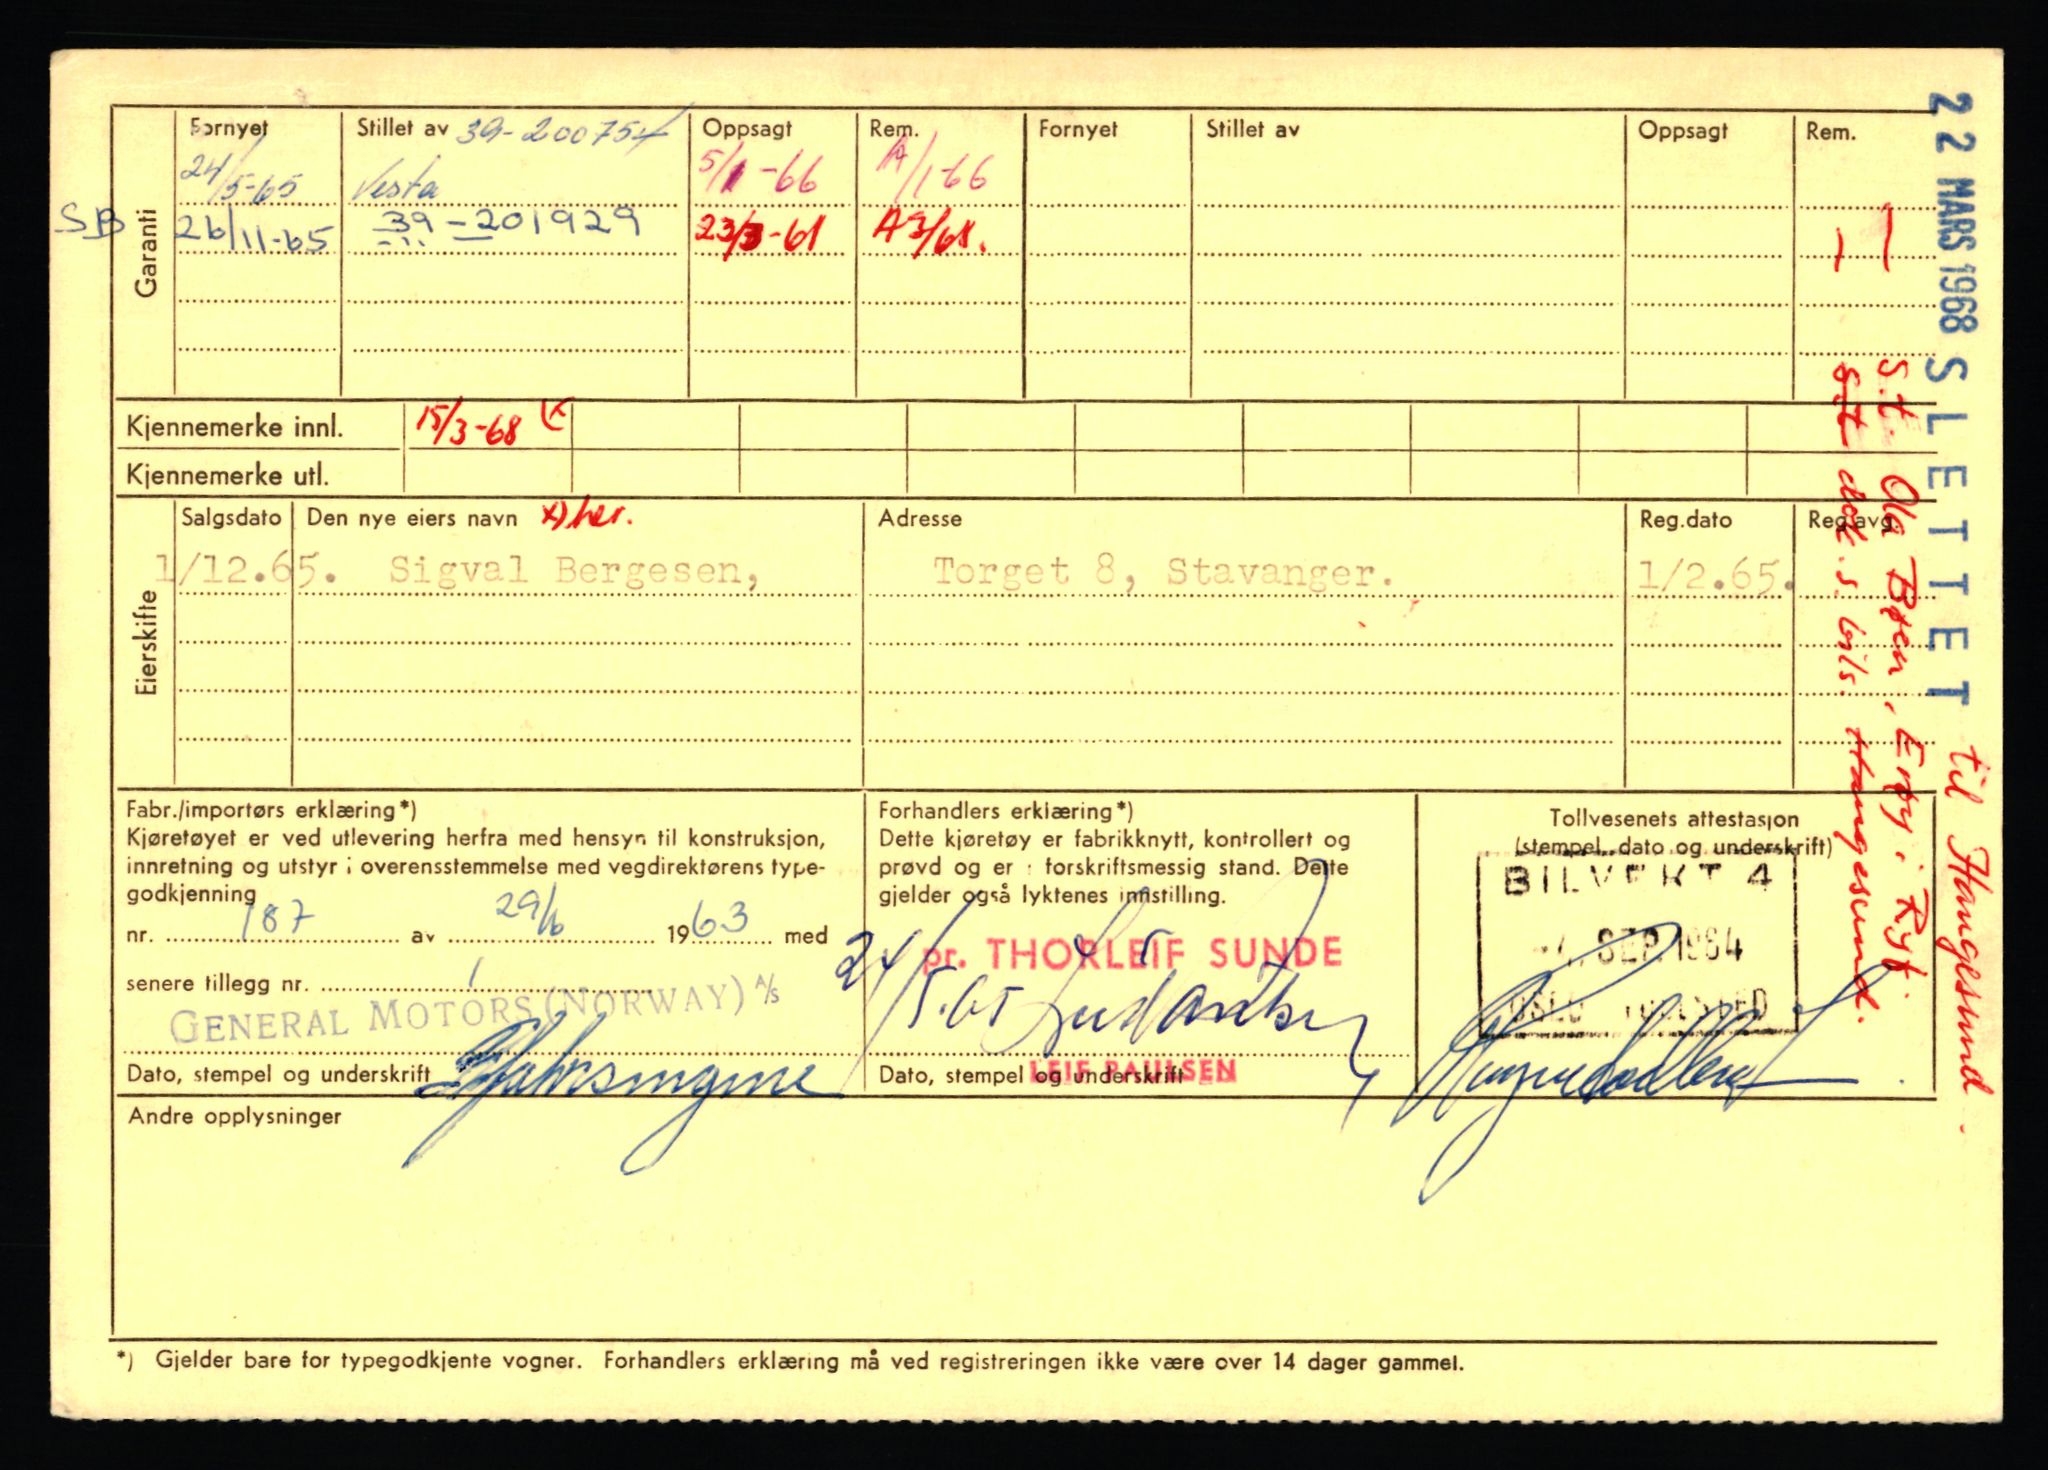 Garanti
Fornyet Stillet av 39-200754 Oppsagt Rem. Fornyet Stillet av Oppsagt Rem.
24/5-65 Vesta 5/1-66 A/1-66
SB 26/11-65 39-201929 23/3-68 A3/68.
Kjennemerke innl. 15/3-68
Kjennemerke utl.
Eierskifte
Salgsdato Den nye eiers navn x) her. Adresse Reg.dato Reg.avg.
1/12.65. Sigval Bergesen, Torget 8, Stavanger. 1/2.65.
Fabr./importørs erklæring*)
Kjøretøyet er ved utlevering herfra med hensyn til konstruksjon,
innretning og utstyr i overensstemmelse med vegdirektørens type-
godkjenning
nr. 187 av 29/6 1963 med
senere tillegg nr. 1
GENERAL MOTORS (NORWAY) A/S
Dato, stempel og underskrift
Forhandlers erklæring*)
Dette kjøretøy er fabrikknytt, kontrollert og
prøvd og er i forskriftsmessig stand. Dette
gjelder også lyktenes innstilling.
pr. THORLEIF SUNDE
24/5.65
LEIF PAULSEN
Dato, stempel og underskrift
Tollvesenets attestasjon
(stempel, dato og underskrift)
BILVEKT 4
SEP. 1964
OSLO TOLLSTED
Andre opplysninger
*) Gjelder bare for typegodkjente vogner. Forhandlers erklæring må ved registreringen ikke være over 14 dager gammel.
22 MARS 1968 SLETTET til Haugesund.
S.t. Ola Bøen, Erøy i Ryf.
S.t dok. s. bils. Haugesund.